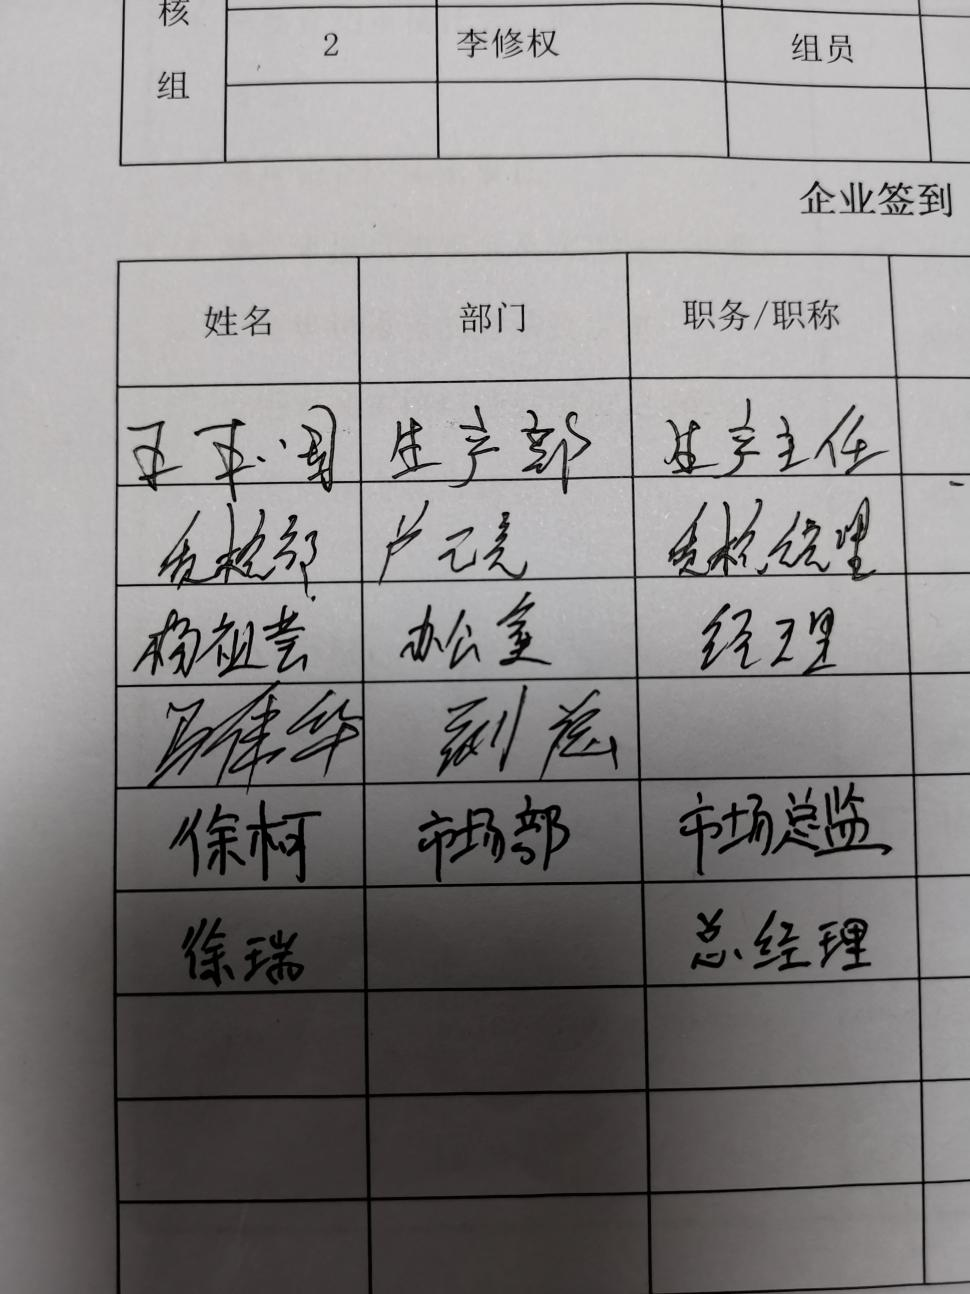 核
2 李修权 组员
组
企业签到
姓名 部门 职务/职称
王 生产部 生产主任
质检部 卢元亮 质检经理
杨祖芸 办公室 经理
华 副总
徐柯 市场部 市场总监
徐瑞 总经理